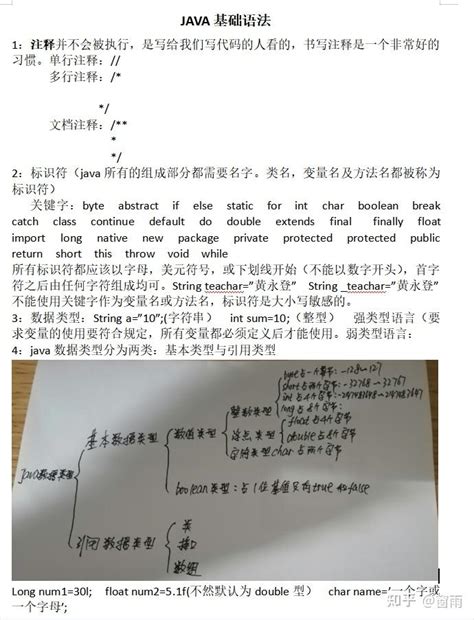 JAVA 基础语法
1：注释并不会被执行，是写给我们写代码的人看的，书写注释是一个非常好的
习惯。单行注释：//
多行注释：/*
*/
文档注释：/**
*
*/
2：标识符（java 所有的组成部分都需要名字。类名，变量名及方法名都被称为
标识符）
关键字：byte abstract if else static for int char boolean break
catch class continue default do double extends final finally float
import long native new package private protected protected public
return short this throw void while
所有标识符都应该以字母，美元符号，或下划线开始（不能以数字开头），首字
符之后由任何字符组成均可。String teachar=”黄永登” String _teachar=”黄永登”
不能使用关键字作为变量名或方法名，标识符是大小写敏感的。
3：数据类型：String a=”10”;(字符串） int sum=10;（整型） 强类型语言（要
求变量的使用要符合规定，所有变量都必须定义后才能使用。弱类型语言：
4：java 数据类型分为两类：基本类型与引用类型
byte占一个字节：-128~127
short占两个字节：-32768~32767
int占4个字节：-2147483648~2147483647
整数类型
long占8个字节：
float占4个字节
基本数据类型
数值类型
浮点类型
double占8个字节
字符类型char占两个字节
java数据类型
boolean类型：占1位其值只有true和false
引用数据类型
类
接口
数组
Long num1=30l; float num2=5.1f(不然默认为 double 型） char name=’一个字或
一个字母’;
知乎 @窗雨